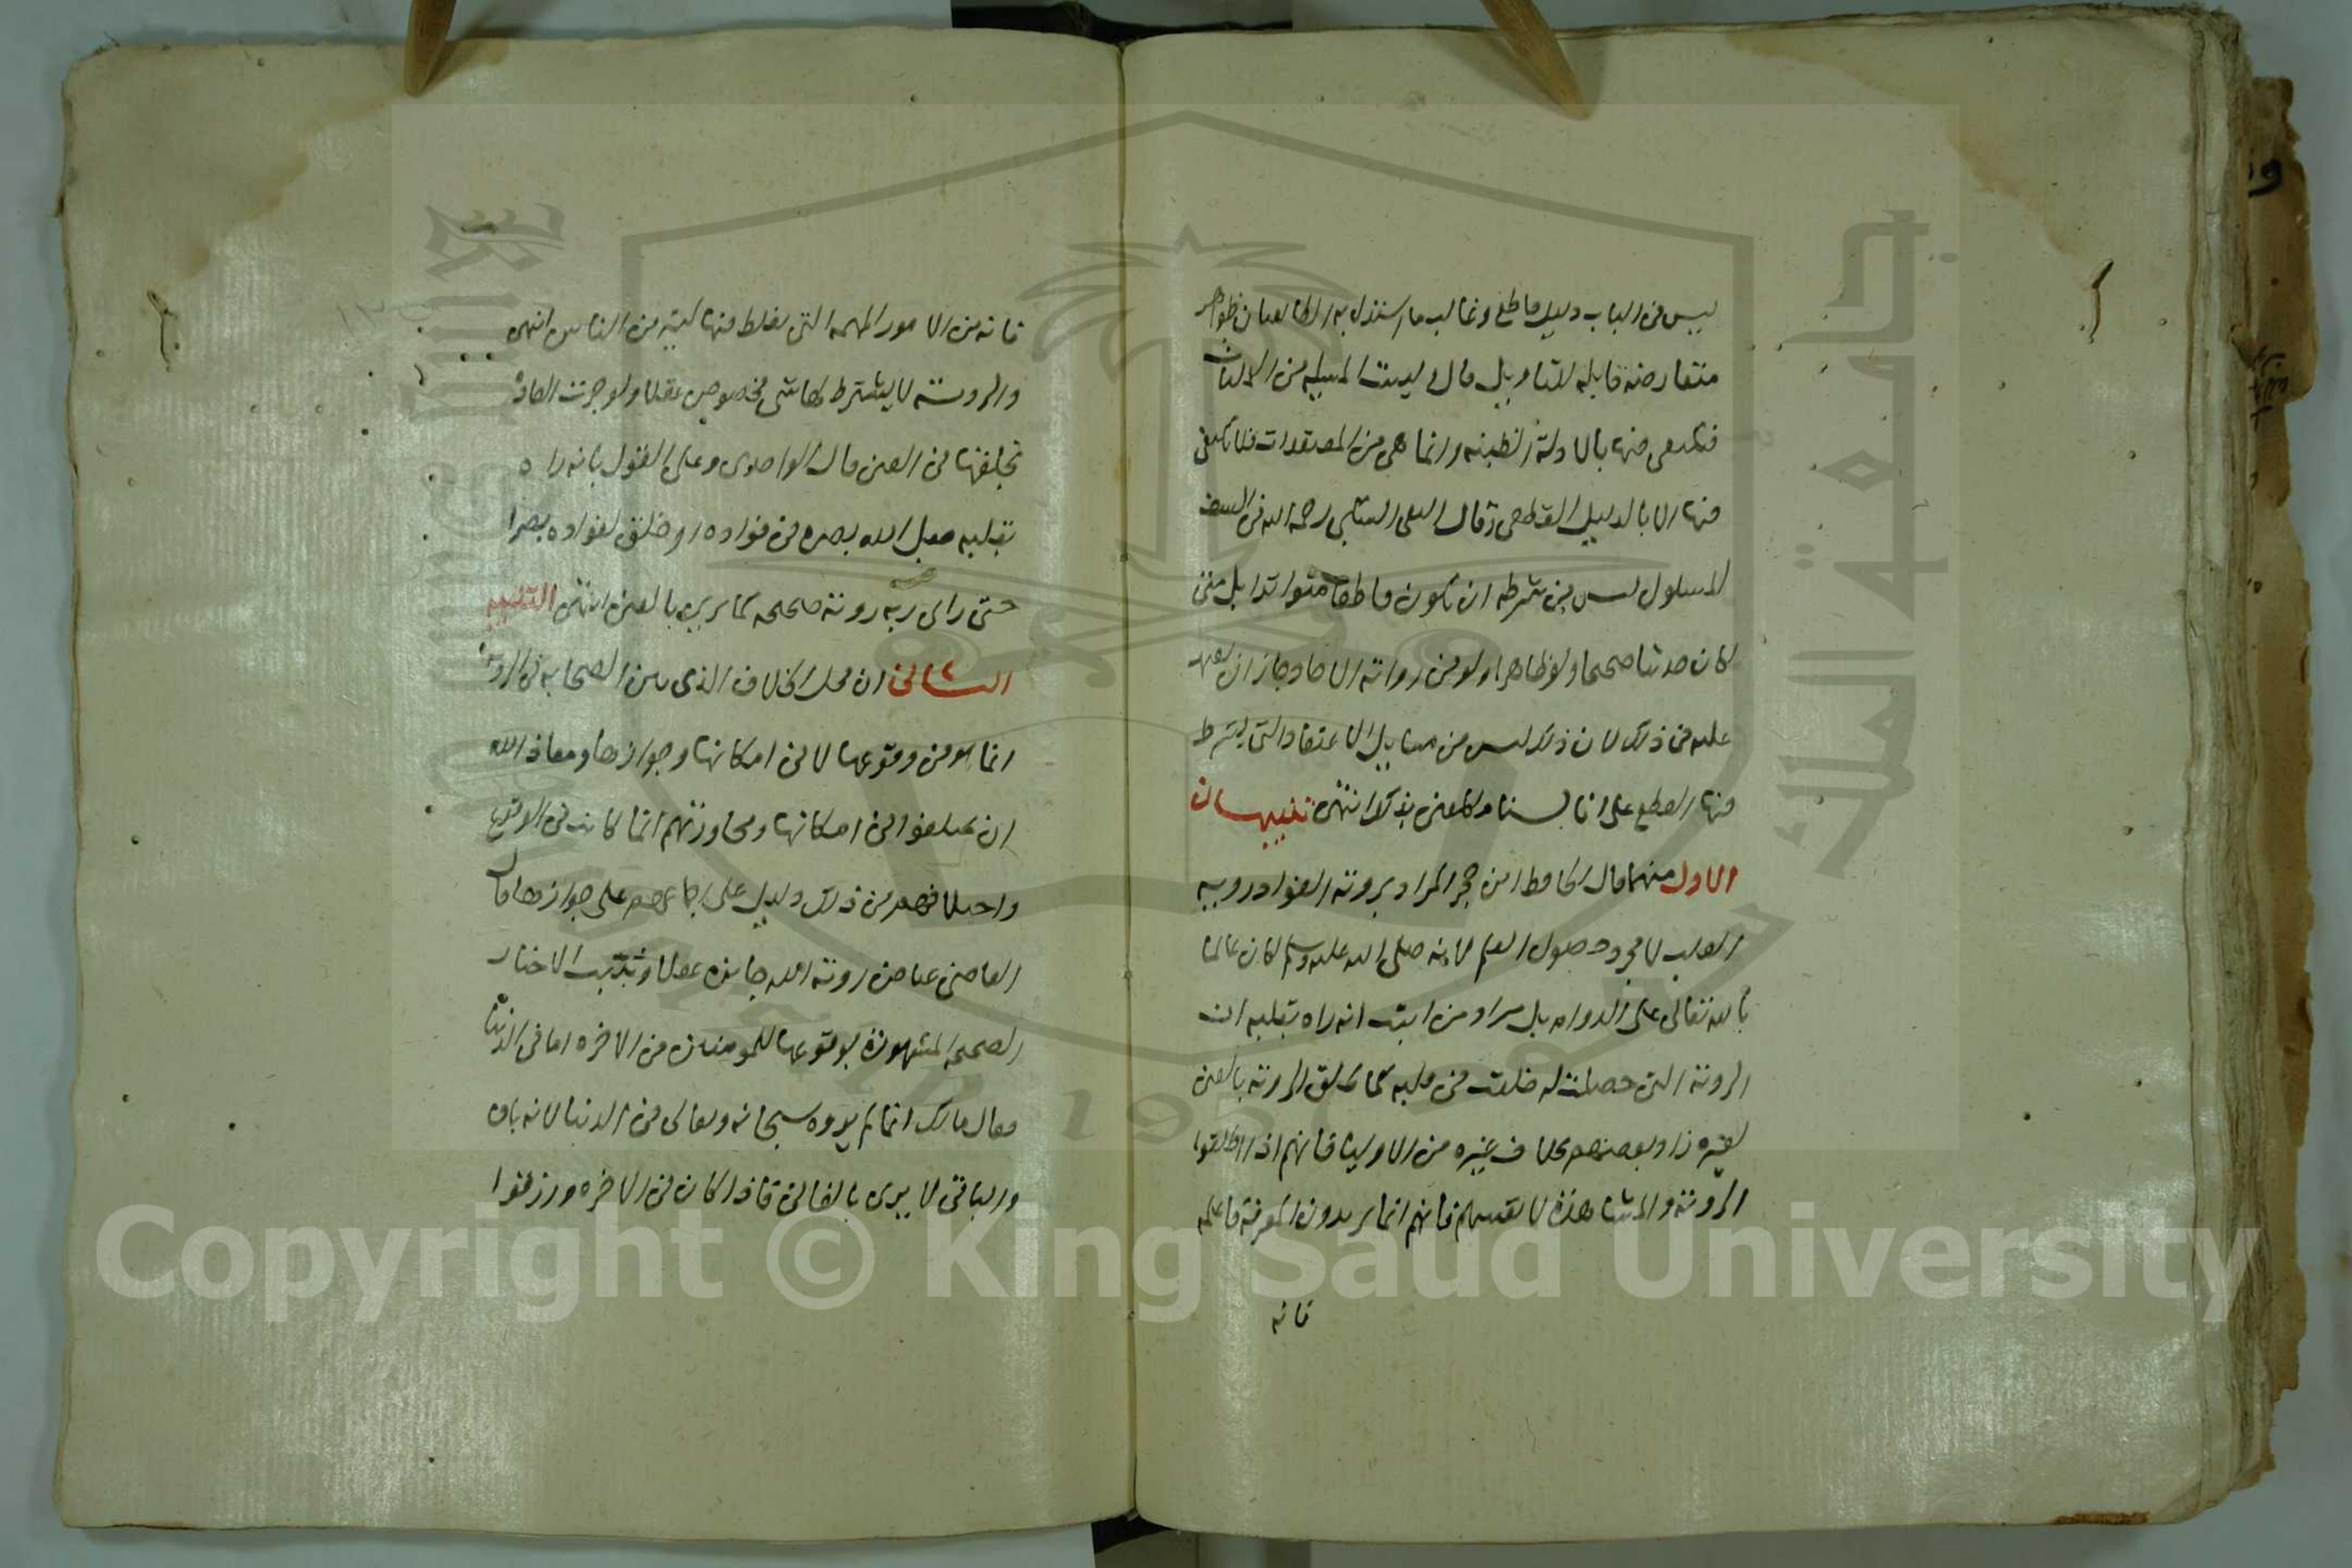 ليس في الباب دليل قاطع وغالب ما استدل به الطائفتان ظواهر
متعارضة قابلة للتأويل قال وليست المسئلة من
فيكتفى فيها بالادلة الظنية وانما هي من المعتقدات فلا يكتفى
فيها الا بالدليل القطعي وقال السبكي رحمه الله في السيف
المسلول ليس من شرطه ان يكون قاطعا متواترا بل متى
كان حديثا صحيحا ولو ظاهرا ولو من رواية الاحاد جاز ان يعتمد
عليه في ذلك لان ذلك ليس من مسايل الاعتقاد التي يشترط
فيها القطع على انا لسنا مكلفين بذلك انتهى تنبيهان
الاول منهما قال الحافظ ابن حجر المراد برؤية الفواد روية
القلب لا مجرد حصول العلم لانه صلى الله عليه وسلم كان عالما
بالله تعالى على الدوام بل مراد من اثبت انه راه بقلبه ان
الروية التي حصلت له خلقت في قلبه كما تخلق الروية بالعين
لغيره زاد بعضهم بخلاف غيره من الاوليا فانهم اذا اطلقوا
الروية والمشاهدة لانفسهم فانهم انما يريدون المعرفة فاعلم
فانه
فانه من الامور المهمة التي يغلط فيها كثير من الناس انتهى
والروية لا يشترط لها شي مخصوص عقلا ولو جرت العادة
بخلقها في العين قال الواحدي وعلى القول بانه راه
بقلبه جعل الله بصره في فواده او خلق لفواده بصرا
حتى راى ربه روية صحيحة كما يرى بالعين انتهى التنبيه
الثاني ان محل الخلاف الذي بين الصحابة في الروية
انما هو في وقوعها لا في امكانها وجوازها ومعاذ الله
ان يختلفوا في امكانها ومحاورتهم انما كانت في الوقوع
واختلافهم في ذلك دليل على اجماعهم على جوازها قال
القاضي عياض روية الله جايزة عقلا وثبتت الاخبار
الصحيحة المشهورة بوقوعها للمومنين في الاخرة اما في الدنيا
فقال مالك انما لم يروه سبحانه وتعالى في الدنيا لانه باق
والباقي لا يرى بالفاني فاذا كان في الاخرة ورزقوا
Copyright © King Saud University
جامعة الملك سعود
King Saud University
1957